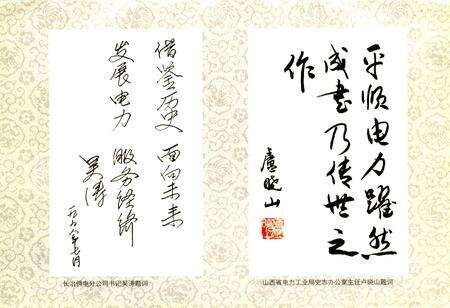 借鉴历史 面向未来
发展电力 服务经济
吴涛
一九九八年七月
长治供电分公司书记吴涛题词
平顺电力躍然
成書乃传世之
作
盧晓山
山西省电力工业局史志办公室主任卢晓山题词